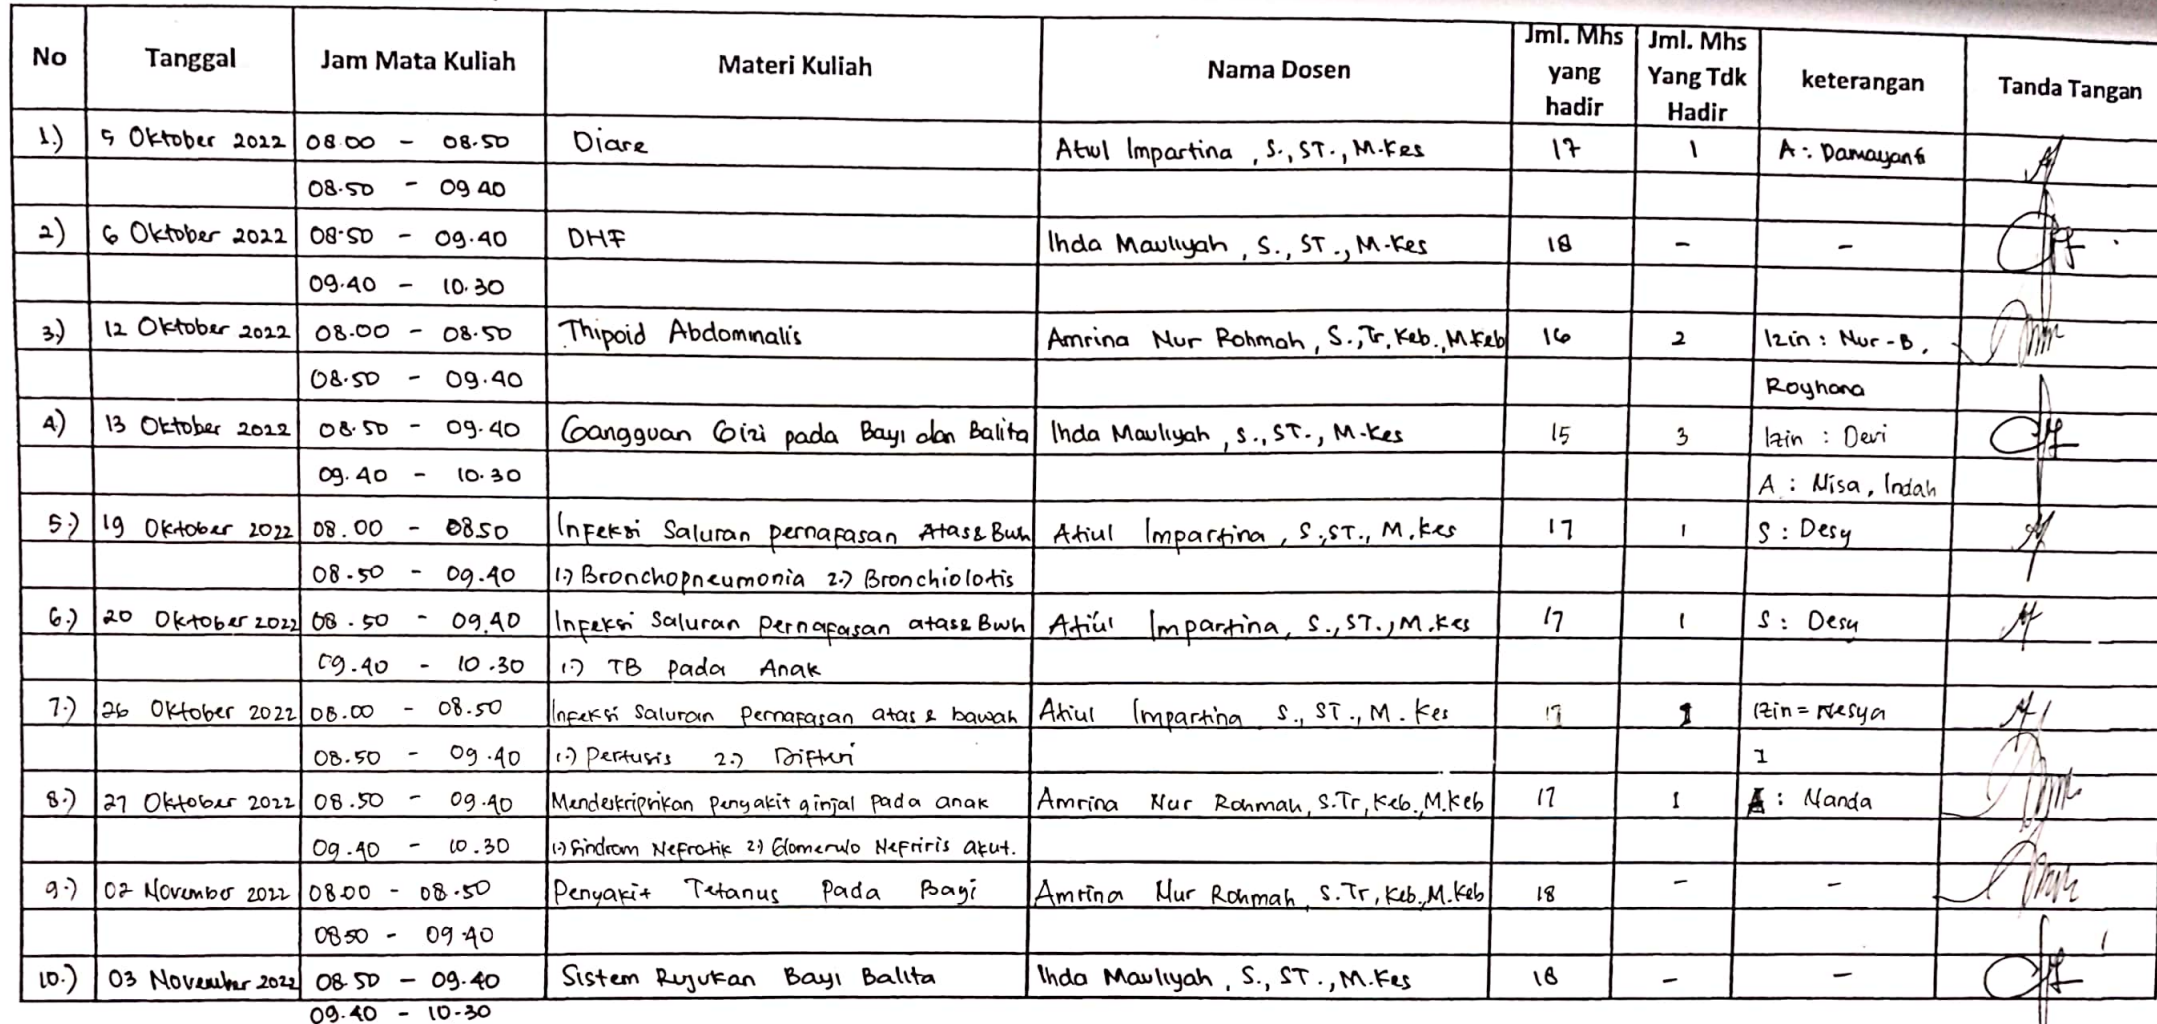 No Tanggal Jam Mata Kuliah Materi Kuliah Nama Dosen Jml. Mhs yang hadir Jml. Mhs Yang Tdk Hadir keterangan Tanda Tangan
1.) 5 Oktober 2022 08.00 - 08.50 Diare Atiul Impartina, S., ST., M.Kes 17 1 A : Damayanti
08.50 - 09.40
2.) 6 Oktober 2022 08.50 - 09.40 DHF Ihda Mauliyah, S., ST., M.Kes 18 - -
09.40 - 10.30
3.) 12 Oktober 2022 08.00 - 08.50 Thipoid Abdominalis Amrina Nur Rohmah, S., Tr. Keb., M.Keb 16 2 Izin : Nur -B,
08.50 - 09.40 Royhana
4.) 13 Oktober 2022 08.50 - 09.40 Gangguan Gizi pada Bayi dan Balita Ihda Mauliyah, S., ST., M.Kes 15 3 Izin : Devi
09.40 - 10.30 A : Nisa, Indah
5.) 19 Oktober 2022 08.00 - 08.50 Infeksi Saluran pernafasan Atas & Bwh Atiul Impartina, S., ST., M.Kes 17 1 S : Desy
08.50 - 09.40 1.) Bronchopneumonia 2.) Bronchiolotis
6.) 20 Oktober 2022 08.50 - 09.40 Infeksi Saluran Pernafasan atas & Bwh Atiul Impartina, S., ST., M.Kes 17 1 S : Desy
09.40 - 10.30 1.) TB pada Anak
7.) 26 Oktober 2022 08.00 - 08.50 Infeksi Saluran Pernafasan atas & bawah Atiul Impartina S., ST., M. Kes 17 1 Izin = Nesya
08.50 - 09.40 1.) Pertusis 2.) Difteri I
8.) 27 Oktober 2022 08.50 - 09.40 Mendeskripsikan penyakit ginjal pada anak Amrina Nur Rohmah, S.Tr, Keb., M.Keb 17 1 : Nanda
09.40 - 10.30 1.) Sindrom Nefrotik 2.) Glomerulo Nefriris akut.
9.) 02 November 2022 08.00 - 08.50 Penyakit Tetanus Pada Bayi Amrina Nur Rohmah, S.Tr, Keb., M.Keb 18 - -
08.50 - 09.40
10.) 03 November 2022 08.50 - 09.40 Sistem Rujukan Bayi Balita Ihda Mauliyah, S., ST., M.Kes 18 - -
09.40 - 10.30